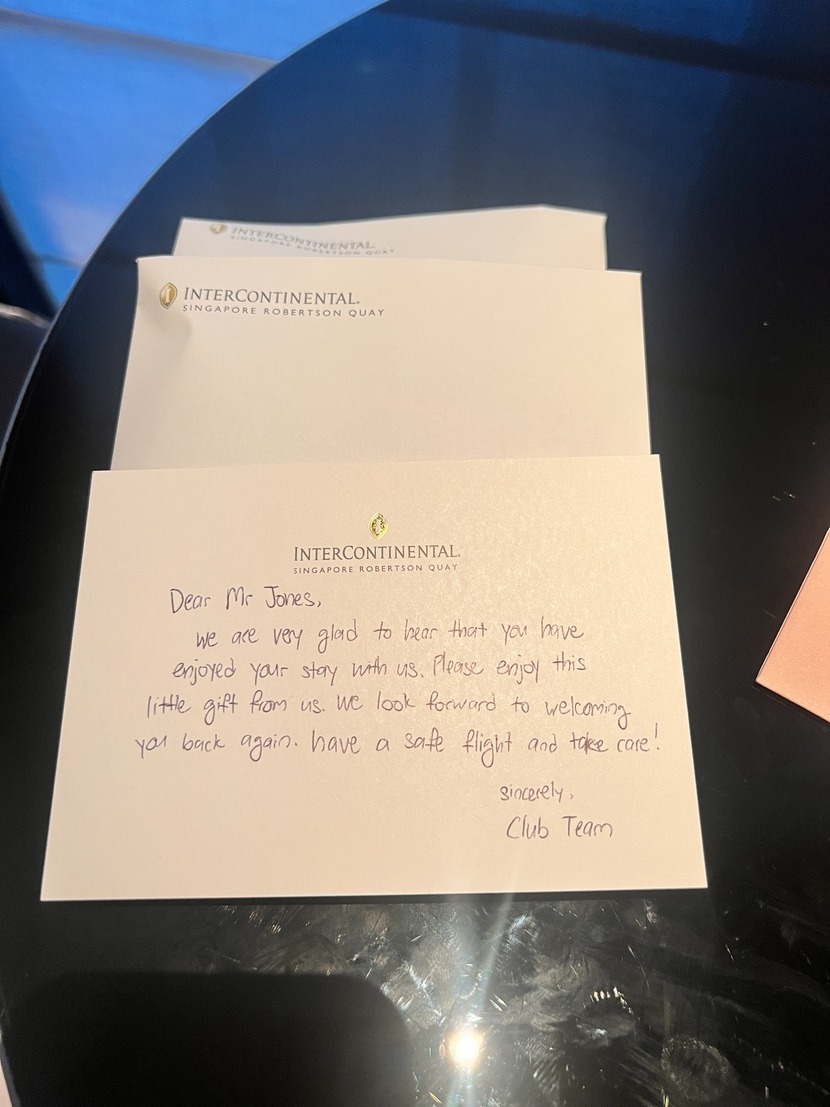 INTERCONTINENTAL
SINGAPORE ROBERTSON QUAY
INTERCONTINENTAL.
SINGAPORE ROBERTSON QUAY
INTERCONTINENTAL.
SINGAPORE ROBERTSON QUAY
Dear Mr Jones,
We are very glad to hear that you have
enjoyed your stay with us. Please enjoy this
little gift from us. We look forward to welcoming
you back again. have a safe flight and take care!
sincerely,
Club Team